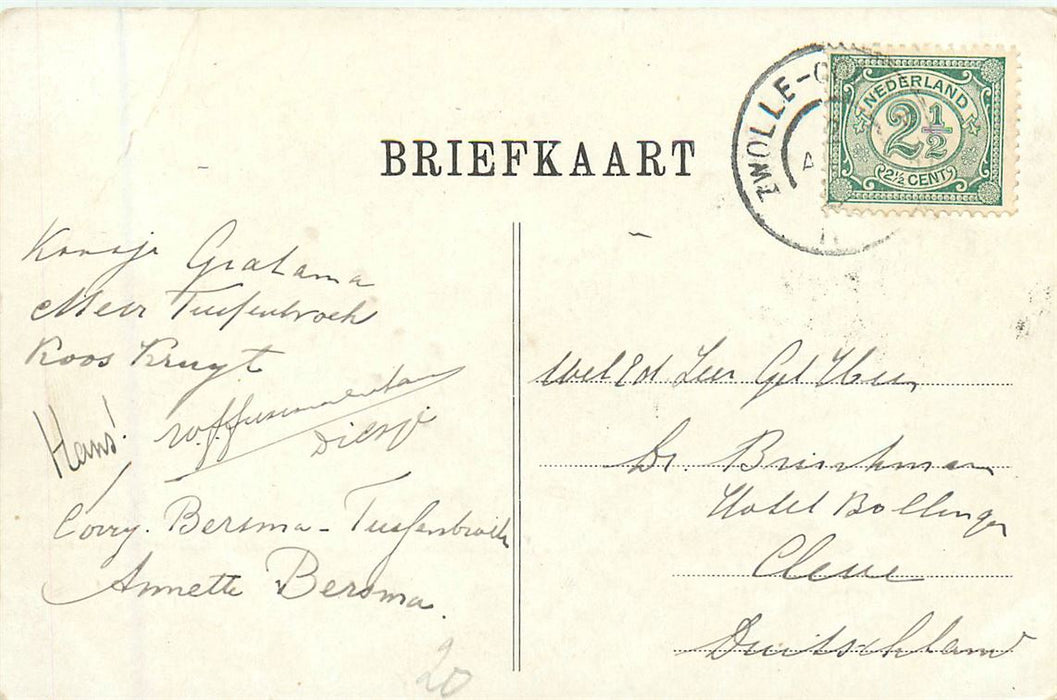 BRIEFKAART
ZWOLLE-
NEDERLAND
2 1/2
2½ CENT
Gratama
Tuefenbroek
Koos Kruyt
Hans!
Corry. Bersma-Tuefenbroek
Annette Bersma.
20
Wel Ed Zeer Gel Heer
Dr Brinkman
Hotel Bollinger
Cleve
Duitschland